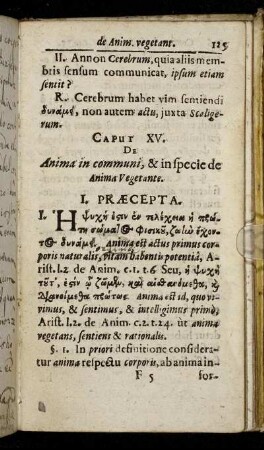 de Anim. vegetant. 125
II. Annon Cerebrum, quia aliis mem-
bris sensum communicat, ipsum etiam
sentit?
R. Cerebrum habet vim sentiendi
δυνάμει, non autem actu, juxta Scalige-
rum.
CAPUT XV.
DE
Anima in communi, & in specie de
Anima Vegetante.
I. PRÆCEPTA.
I. Ἡ ψυχή ἐςιν ἐν τελέχεια ἡ πρώ-
τη σώμα]@ φυσικῦ, ζωὴν ἔχον-
τ@ δυνάμει, Anima est actus primus cor-
poris naturalis, vitam habentis potentiâ, A-
rist. l. 2. de Anim. c. 1. t. 6. Seu, ἡ ψυχή
τῦτ', ἐςὶν ᾧ ζῶμεν, καὶ αἰσθανόμεθα, κ̀
διανοίμεθα πρώτως. Anima est id, quo vi-
vimus, & sentimus, & intelligimus primò,
Arist. l. 2. de Anim. c. 2. t. 24. ut anima
vegetans, sentiens & rationalis.
§. 1. In priori definitione considera-
tur anima respectu corporis, ab anima in-
F 5 for-